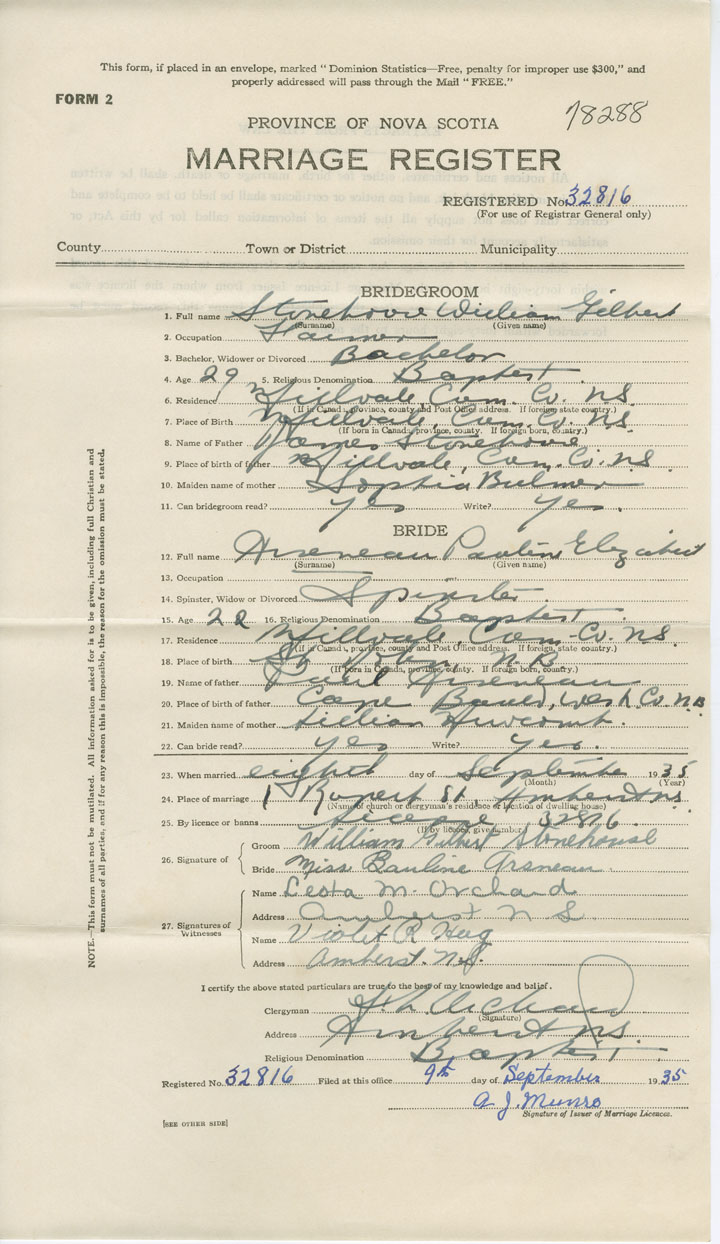 This form, if placed in an envelope, marked "Dominion Statistics—Free, penalty for improper use $300," and
properly addressed will pass through the Mail "FREE."
FORM 2
78288
PROVINCE OF NOVA SCOTIA
MARRIAGE REGISTER
REGISTERED No. 32816
(For use of Registrar General only)
County Town or District Municipality
BRIDEGROOM
1. Full name Stonehouse William Gilbert
(Surname) (Given name)
2. Occupation Farmer
3. Bachelor, Widower or Divorced Bachelor
4. Age 29 5. Religious Denomination Baptist
6. Residence Millvale Cum. Co. N.S.
(If in Canada, province, county and Post Office address. If foreign state country.)
7. Place of Birth Millvale Cum. Co. N.S.
(If born in Canada, province, county. If foreign born, country.)
8. Name of Father James Stonehouse
9. Place of birth of father Millvale, Cum. Co. N.S.
10. Maiden name of mother Sophia Bulmer
11. Can bridegroom read? Yes Write? Yes.
BRIDE
12. Full name Arseneau Pauline Elizabeth
(Surname) (Given name)
13. Occupation
14. Spinster, Widow or Divorced Spinster
15. Age 22 16. Religious Denomination Baptist
17. Residence Millvale, Cum. Co. N.S.
(If in Canada, province, county and Post Office address. If foreign, state country.)
18. Place of birth St John, N.B.
(If born in Canada, province, county. If foreign born, country.)
19. Name of father Paul Arseneau
20. Place of birth of father Cape Bauld, West. Co. N.B
21. Maiden name of mother Lillian Newcomb.
22. Can bride read? Yes Write? Yes.
23. When married eighth day of September 1935
(Month) (Year)
24. Place of marriage 1 Rupert St, Amherst N.S.
(Name of church or clergyman's residence or location of dwelling house)
25. By licence or banns License 32816
(If by licence, give number)
26. Signature of
Groom William Gilbert Stonehouse
Bride Miss Pauline Arseneau
27. Signatures of Witnesses
Name Leota M. Orchard
Address Amherst N S
Name Violet R
Address Amherst. N.S.
I certify the above stated particulars are true to the best of my knowledge and belief.
Clergyman
(Signature)
Address Amherst N.S.
Religious Denomination Baptist
Registered No. 32816 Filed at this office 9th day of September 1935
A. J. Munro
Signature of Issuer of Marriage Licences.
[SEE OTHER SIDE]
NOTE.—This form must not be mutilated. All information asked for is to be given, including full Christian and
surnames of all parties, and if for any reason this is impossible, the reason for the omission must be stated.